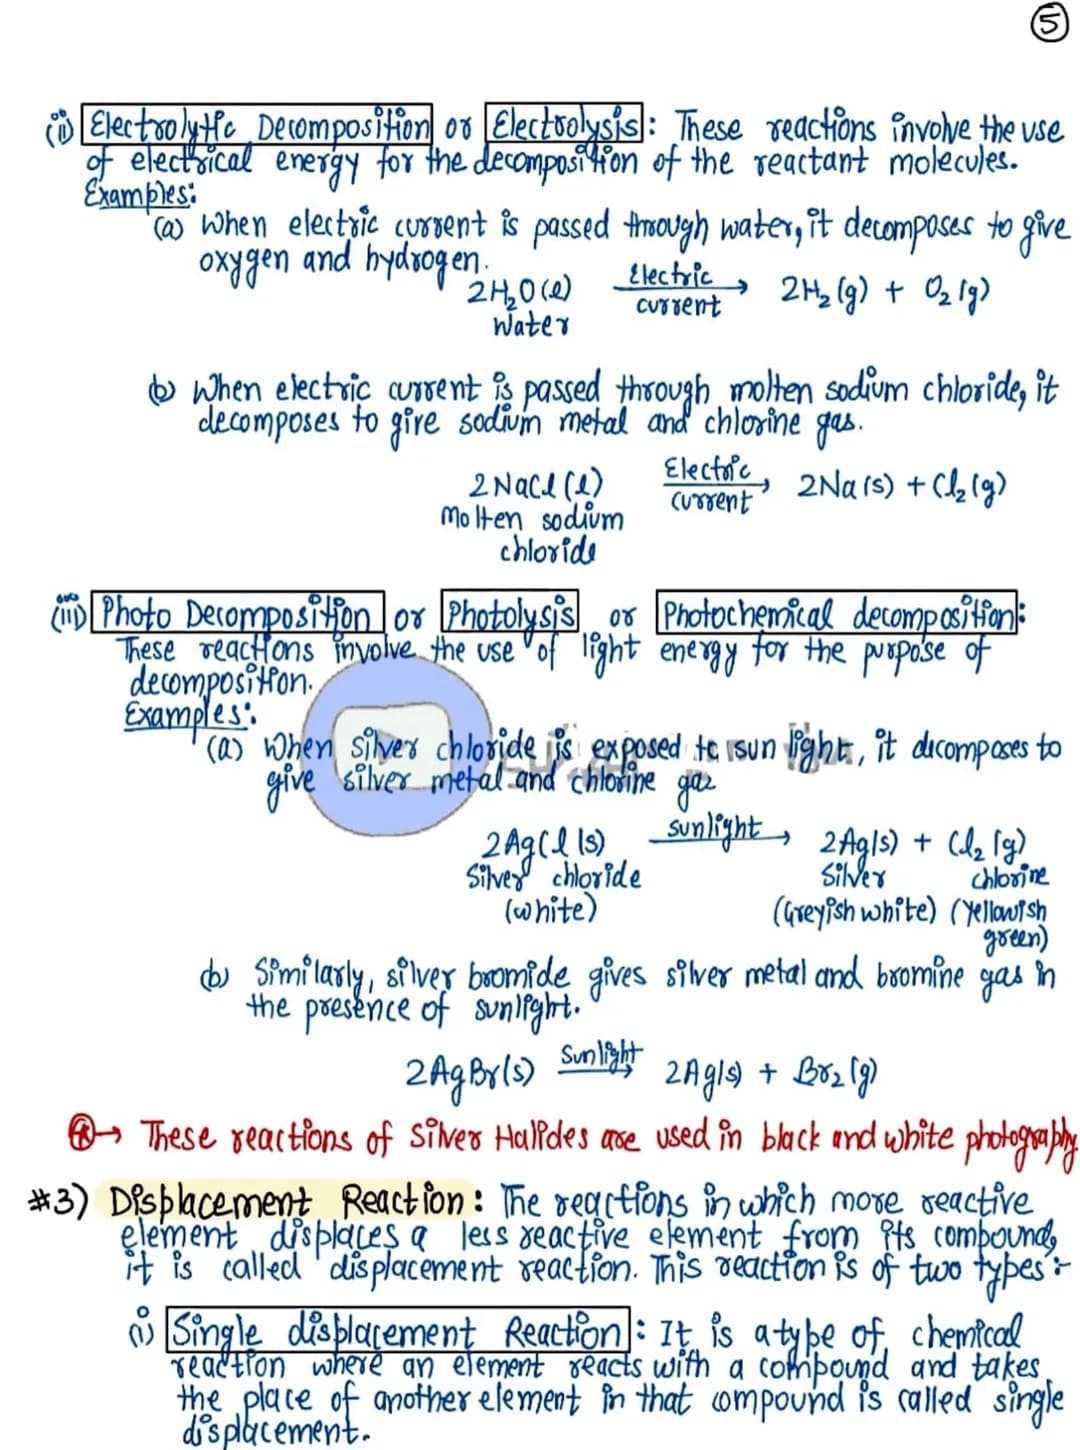 5
(ii) Electrolytic Decomposition or Electrolysis: These reactions involve the use
of electrical energy for the decomposition of the reactant molecules.
Examples:
(a) When electric current is passed through water, it decomposes to give
oxygen and hydrogen.
2H₂O(l) Electric current → 2H₂(g) + O₂(g)
Water
(b) When electric current is passed through molten sodium chloride, it
decomposes to give sodium metal and chlorine gas.
2NaCl(l) Electric current → 2Na(s) + Cl₂(g)
Molten sodium
chloride
(iii) Photo Decomposition or Photolysis or Photochemical decomposition:
These reactions involve the use of light energy for the purpose of
decomposition.
Examples:
(a) When silver chloride is exposed to sun light, it dicomposes to
give silver metal and chlorine gaz
2AgCl(s) sunlight → 2Ag(s) + Cl₂(g)
Silver chloride Silver chlorine
(white) (Greyish white) (Yellowish
green)
(b) Similarly, silver bromide gives silver metal and bromine gas in
the presence of sunlight.
2AgBr(s) Sunlight → 2Ag(s) + Br₂(g)
→ These reactions of Silver Halides are used in black and white photography.
#3) Displacement Reaction: The reactions in which more reactive
element displaces a less reactive element from its compound,
it is called displacement reaction. This reaction is of two types:-
(i) Single displacement Reaction: It is a type of chemical
reaction where an element reacts with a compound and takes
the place of another element in that compound is called single
displacement.